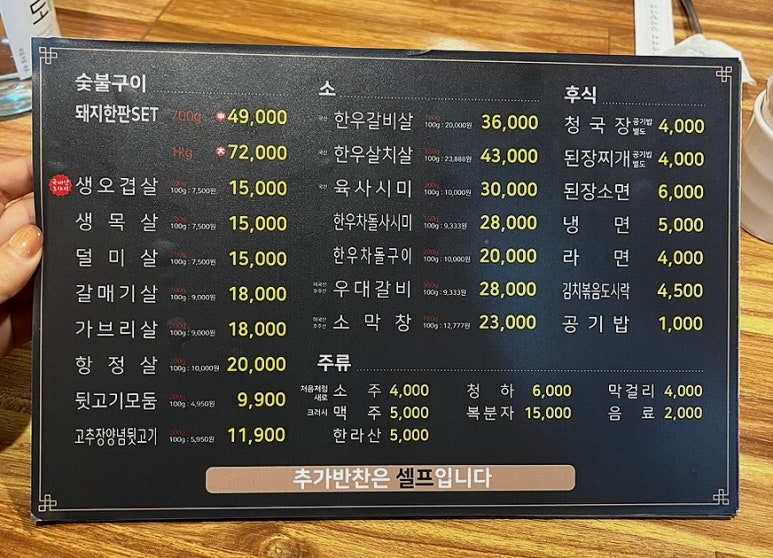 숯불구이
돼지한판SET 700g 中 49,000
1kg 大 72,000
생오겹살 100g : 7,500원 15,000
생목살 200g 100g : 7,500원 15,000
덜미살 200g 100g : 7,500원 15,000
갈매기살 200g 100g : 9,000원 18,000
가브리살 200g 100g : 9,000원 18,000
항정살 200g 100g : 10,000원 20,000
뒷고기모둠 200g 100g : 4,950원 9,900
고추장양념뒷고기 200g 100g : 5,950원 11,900
소
국산 한우갈비살 100g : 20,000원 36,000
국산 한우살치살 100g : 23,888원 43,000
국산 육사시미 100g : 10,000원 30,000
한우차돌사시미 100g : 9,333원 28,000
한우차돌구이 200g 100g : 10,000원 20,000
미국산 호주산 우대갈비 300g 100g : 9,333원 28,000
미국산 호주산 소막창 100g : 12,777원 23,000
후식
청국장 공기밥 별도 4,000
된장찌개 공기밥 별도 4,000
된장소면 6,000
냉면 5,000
라면 4,000
김치볶음도시락 4,500
공기밥 1,000
주류
처음처럼 새로 소주 4,000 청하 6,000 막걸리 4,000
크러시 맥주 5,000 복분자 15,000 음료 2,000
한라산 5,000
추가반찬은 셀프입니다